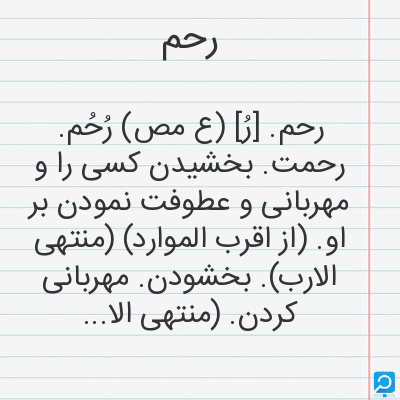 رحم
رحم. [رُ] (ع مص) رُحُم.
رحمت. بخشیدن کسی را و
مهربانی و عطوفت نمودن بر
او. (از اقرب الموارد) (منتهی
الارب). بخشودن. مهربانی
کردن. (منتهی الا...